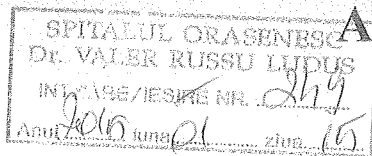 A
SPITALUL ORASENESC
Dr. VALER RUSSU LUDUS
INTRARE/IESIRE NR.
Anul luna 01 ziua 15